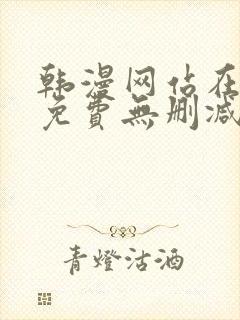 韩漫网站在
免費無删减
青燈沽酒